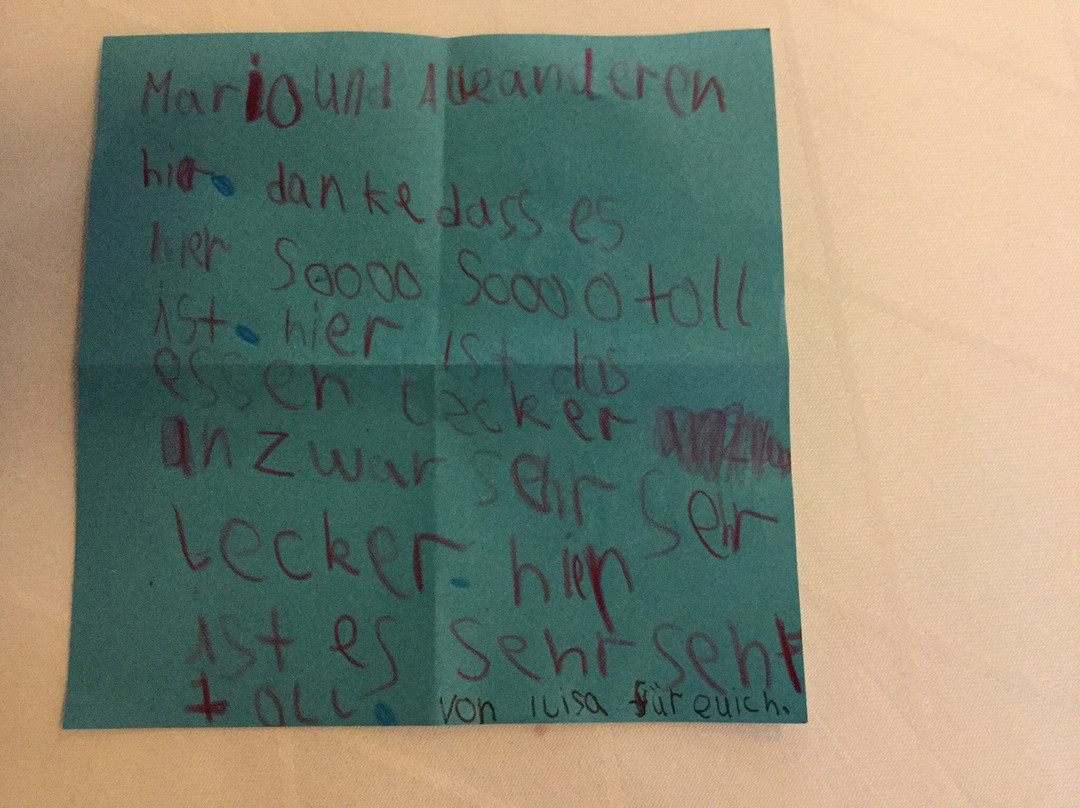 Mario und Alle anderen
hier. danke dass es
hier Soooo Soooo toll
ist. hier ist das
essen lecker
unzwar sehr sehr
lecker. hier
ist es sehr sehr
toll. von luisa für euich.